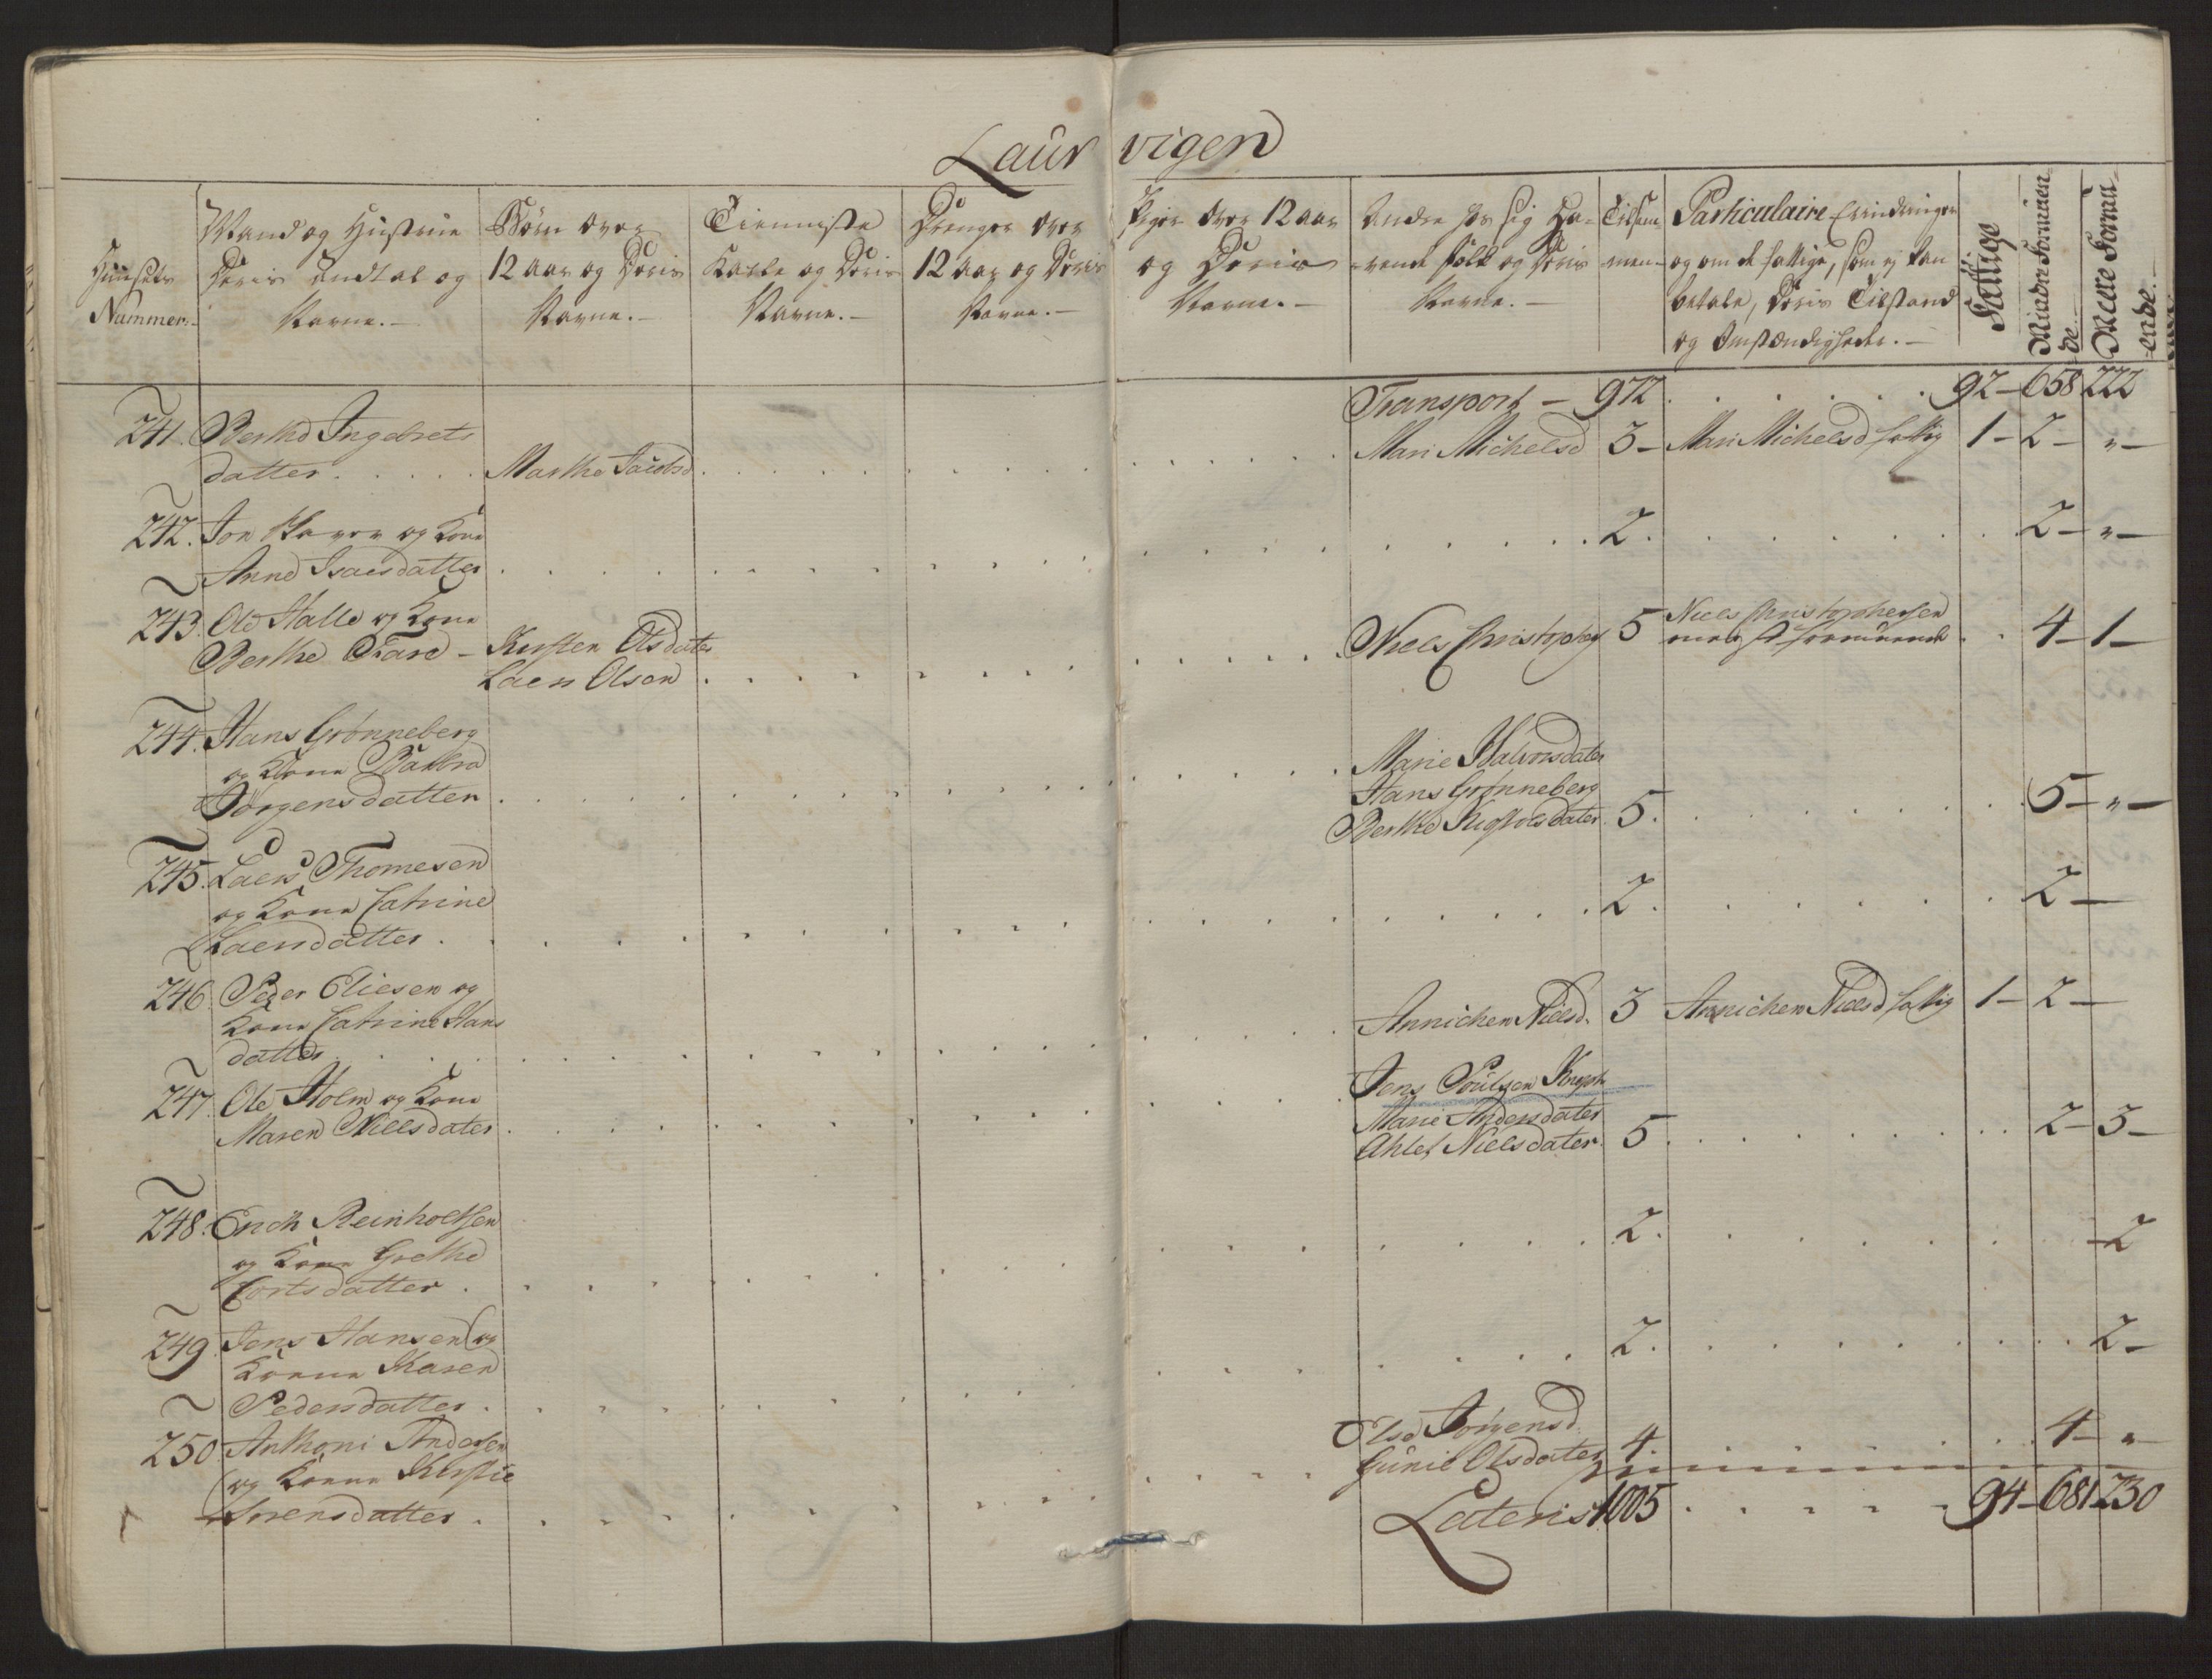 Laur vigen
Huusets Nummer.
Mand og Hustrue Deris Andtal og Navne.
Børn over 12 aar og Deris Navne.
Tienniste Karle og Deris Navne.
Drenger over 12 aar og Deris Navne.
Piger over 12 aar og Deris Navne.
Andre hos sig Ha-vende folk og Deris Navne.
Tilsam-men
Particulaire Erindringer og om de fattige, som ej kan betale, Deris Tilstand og Omstændigheder.
Fattige
Mindre Formuen-de
Meere Formu-ende
Transport - 972 . . . . . . 92 - 658 222
241. Berthe Ingebrets
datter . . . . . Marthe Jacobsd . . . Mari Michelsd 3 - Mari Michelsd fattig 1 - 2 - " -
242. Jon og Kone
Anne Isacsdatter . . . 2. . . . 2 - " -
243. Ole Halle og Kone
Berthe - Kirsten Olsdater . . . Niels Christophers 5 Niels Christophersen meest formuende . . 4 - 1 -
Laers Olsen
244. Hans Grønneberg
og Kone Barbra
Jørgensdatter . . .
Marie Halvorsdater
Hans Grønneberg
Berthe dater. 5. . . . 5 - " -
245. Laers Thomesen
og Kone Catrine
Laersdatter . . . 2. . . . 2 -
246. Peder Eliesen og
Kone Catrine Hans
datter . . . Annichen Nielsd. 3 Annichen Nielsd fattig 1 - 2 -
247. Ole Holm og Kone
Maren Nielsdater . . .
Jens Poulsen
Marie Andersdater
Ahlet Nielsdater. 5. . . . 2 - 3 -
248. Erich Reinholtsen
og Kone Grethe
Cortsdatter . . . 2. . . . 2
249. Jens Hansen og
Konne Maren
Pedersdatter . . . 2. . . . 2 -
250. Anthoni Andersen
og Konne Kirstie
Sørensdatter . . .
Else Jørgensd.
Gunild Olsdater 4. . . . 4 - "
Lateris 1005 . . . . 94 - 681 230